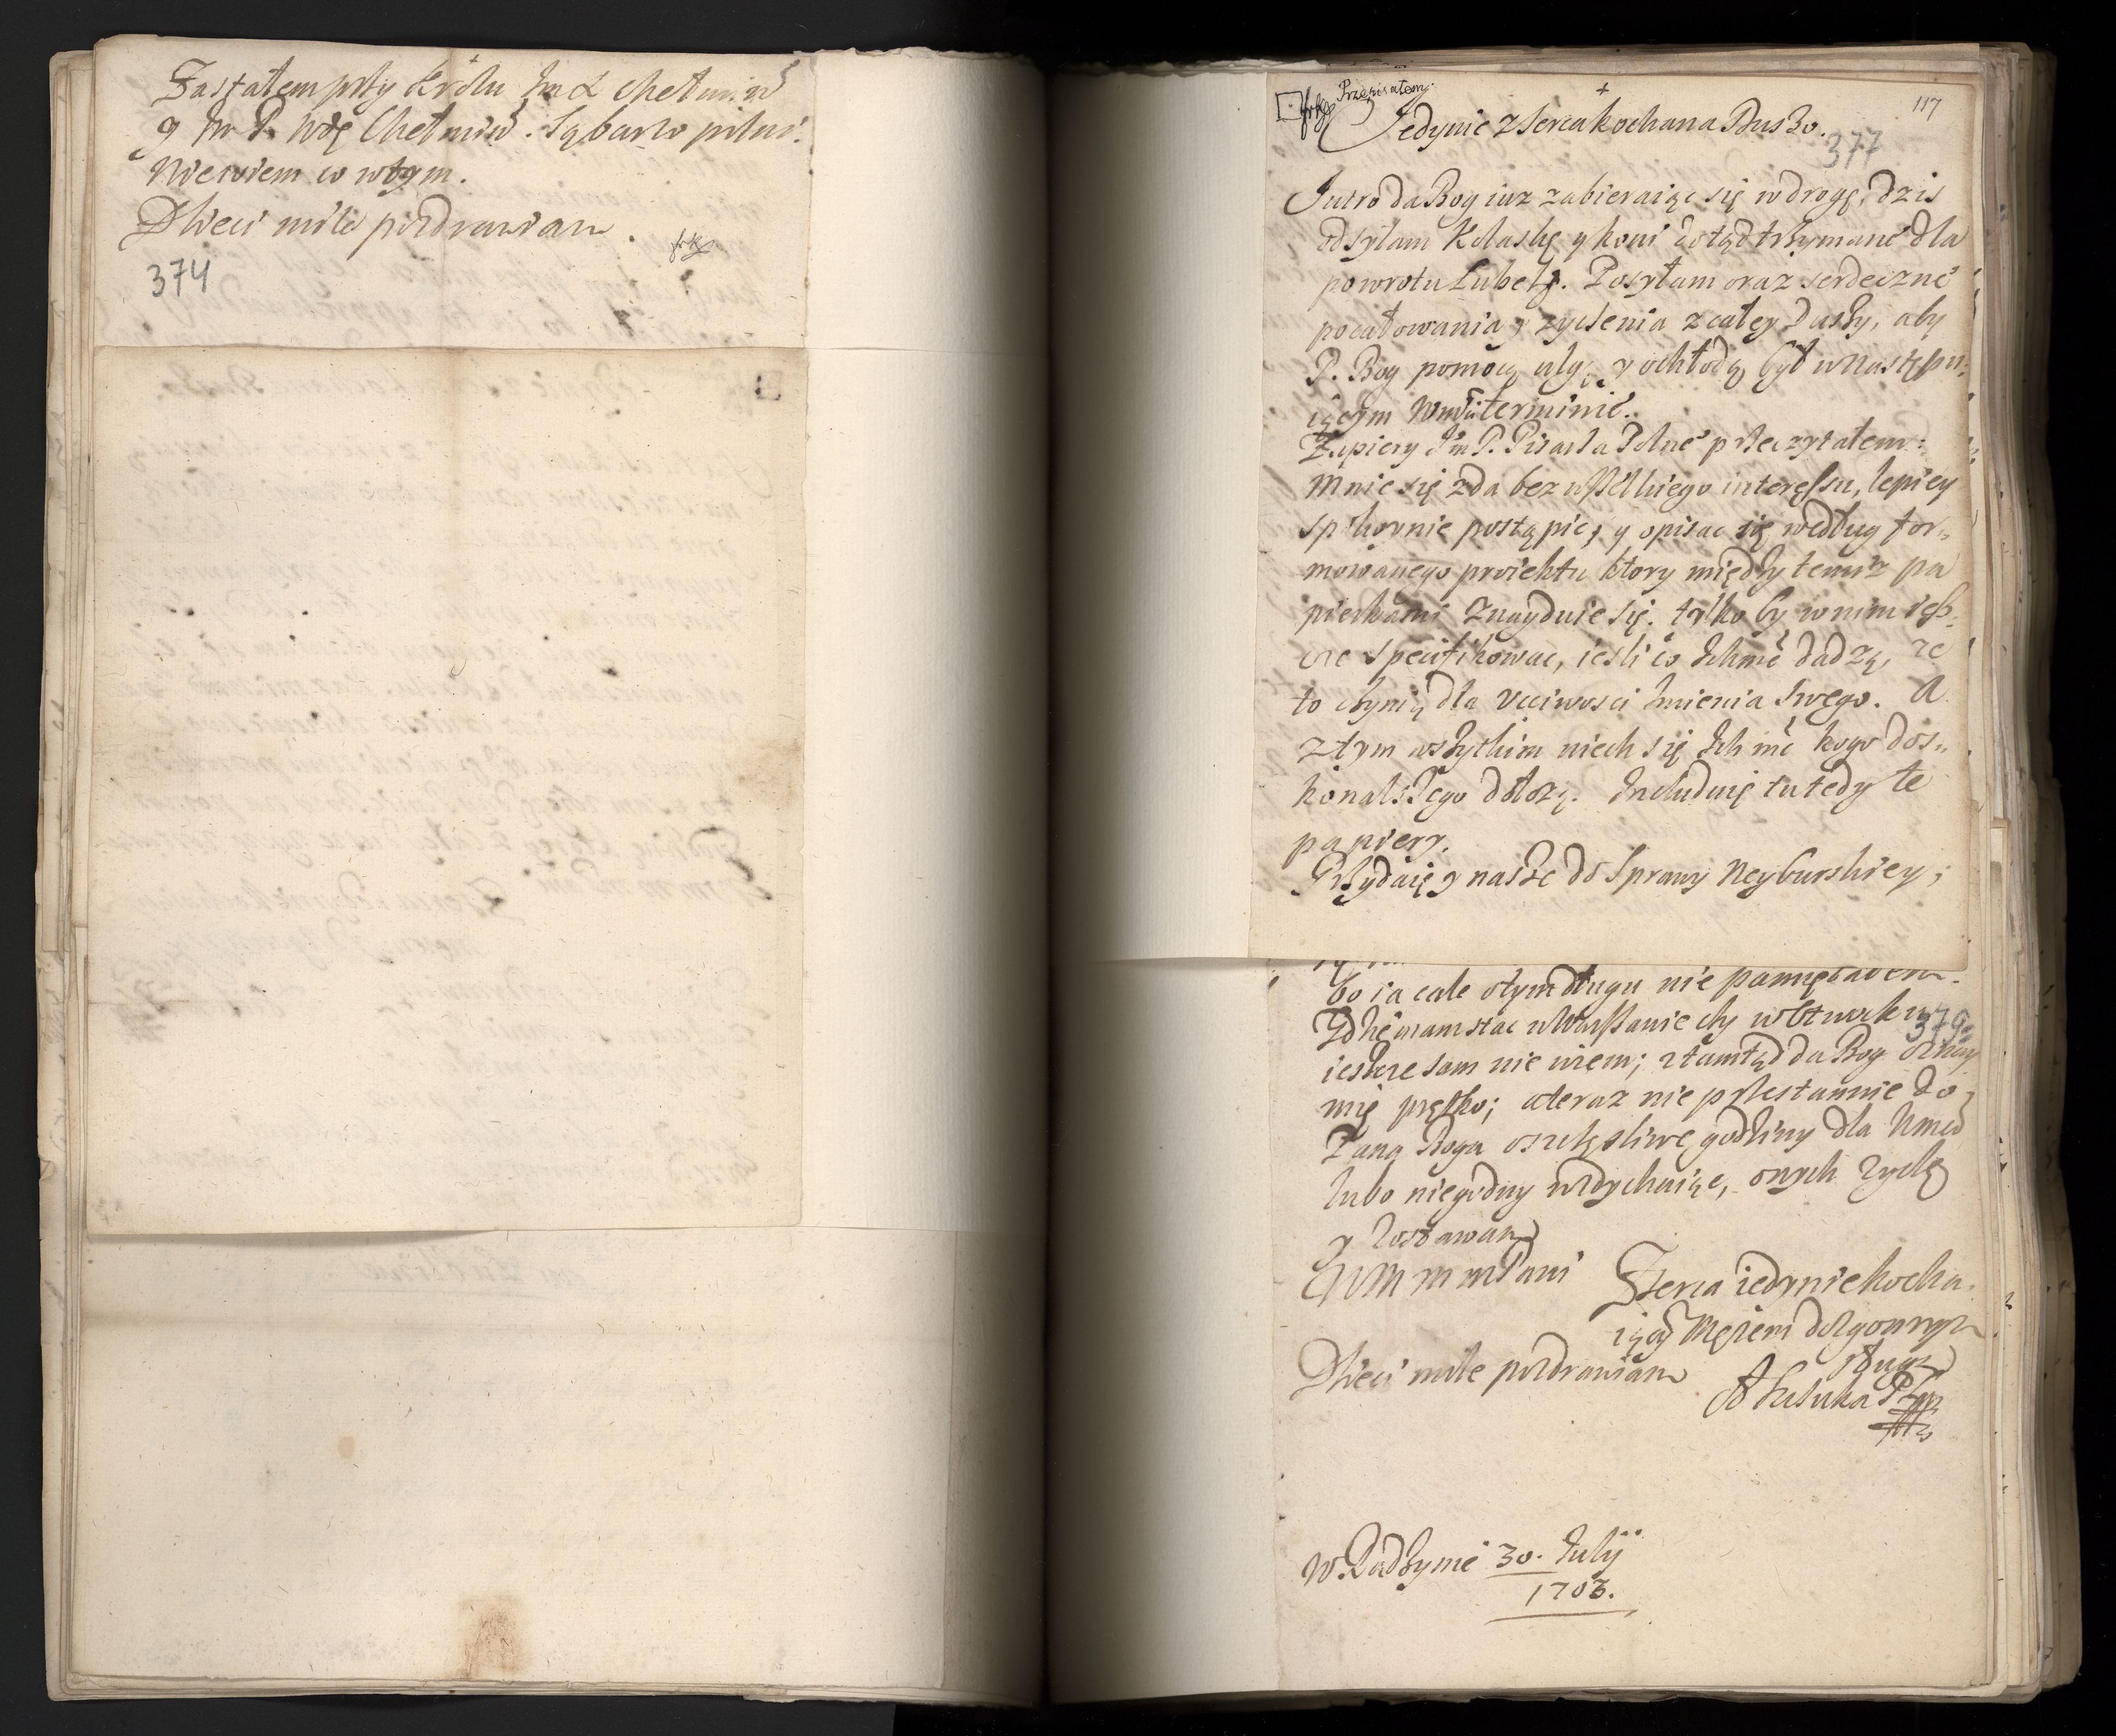 Zastałem przy Królu Im X Chełmińs
y Im P. Wdę Chełmińs. Są barzo pilni.
Niewiem co wtym.
Dzieci miłe pozdrawiam.
374
Przepisałem
117
Jedynie z serca kochana Duszo.
377
Jutro da Bog iuz zabieraiąc się w drogę, dzis
odsyłam Kolaskę y koni dotąd trzymane dla
powrotu Lubelz. Posyłam oraz serdeczne
pocałowania y zyczenia z całey Duszy, aby
P. Bog pomocą ulgą y ochłodą był w następu:
iącym terminie.
Papiery Im P. Pisarza Polne przeczytałem:
Mnie się zda bez wszelkiego interęssu, lepiey
postąpic, y opisac się według for„
mowanego proiektu ktory między temiz pa
pierkami znayduie się. tylko by w nim
specifikowac, iesli co Ichmć dadzą, ze
to czynią dla Ucciwosci Imienia swego. A
z tym wszytkim niech się Ichmć kogo dos„
konalszego dołozą. Includuię tu tedy te
papiery.
Przydaię y nasze do Sprawy Neyburskiey;
bo ia cale o tym długu nie pamiętałem.
379
Gdzie mam stac w Warszawie czy w
ieszcze sam nie wiem; ztamtąd da Bog
mię prętko; a teraz nie przestannie do
Pana Boga o szczęsliwe godziny dla Wmci
lubo niegodny wzdychaiąc, onych zyczę
y zostawam
WM m mPani
Z serca iedynie kocha.
iącym Męzem dozgonnym
sługą
Dzieci miłe pozdrawiam
A Załuka
W Radzyme 30. Julij
1703.